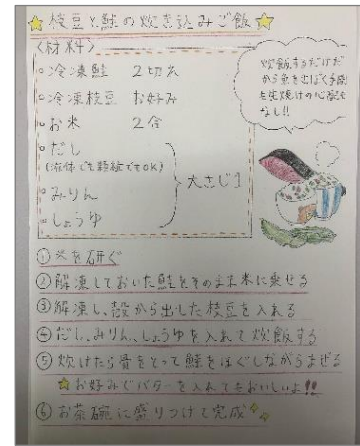 ☆枝豆と鮭の炊き込みご飯☆
〈材料〉
○冷凍鮭 2切れ
○冷凍枝豆 お好み
○お米 2合
○だし
(液体でも顆粒でもOK)
○みりん
○しょうゆ
大さじ1
炊飯するだけだ
から魚をさばく手間
も生焼けの心配も
なし!!
①米を研ぐ
②解凍しておいた鮭をそのまま米に乗せる
③解凍し、殻から出した枝豆を入れる
④だし、みりん、しょうゆを入れて炊飯する
⑤炊けたら骨をとって鮭をほぐしながらまぜる
☆お好みでバターを入れてもおいしいよ!!
⑥お茶碗に盛りつけて完成